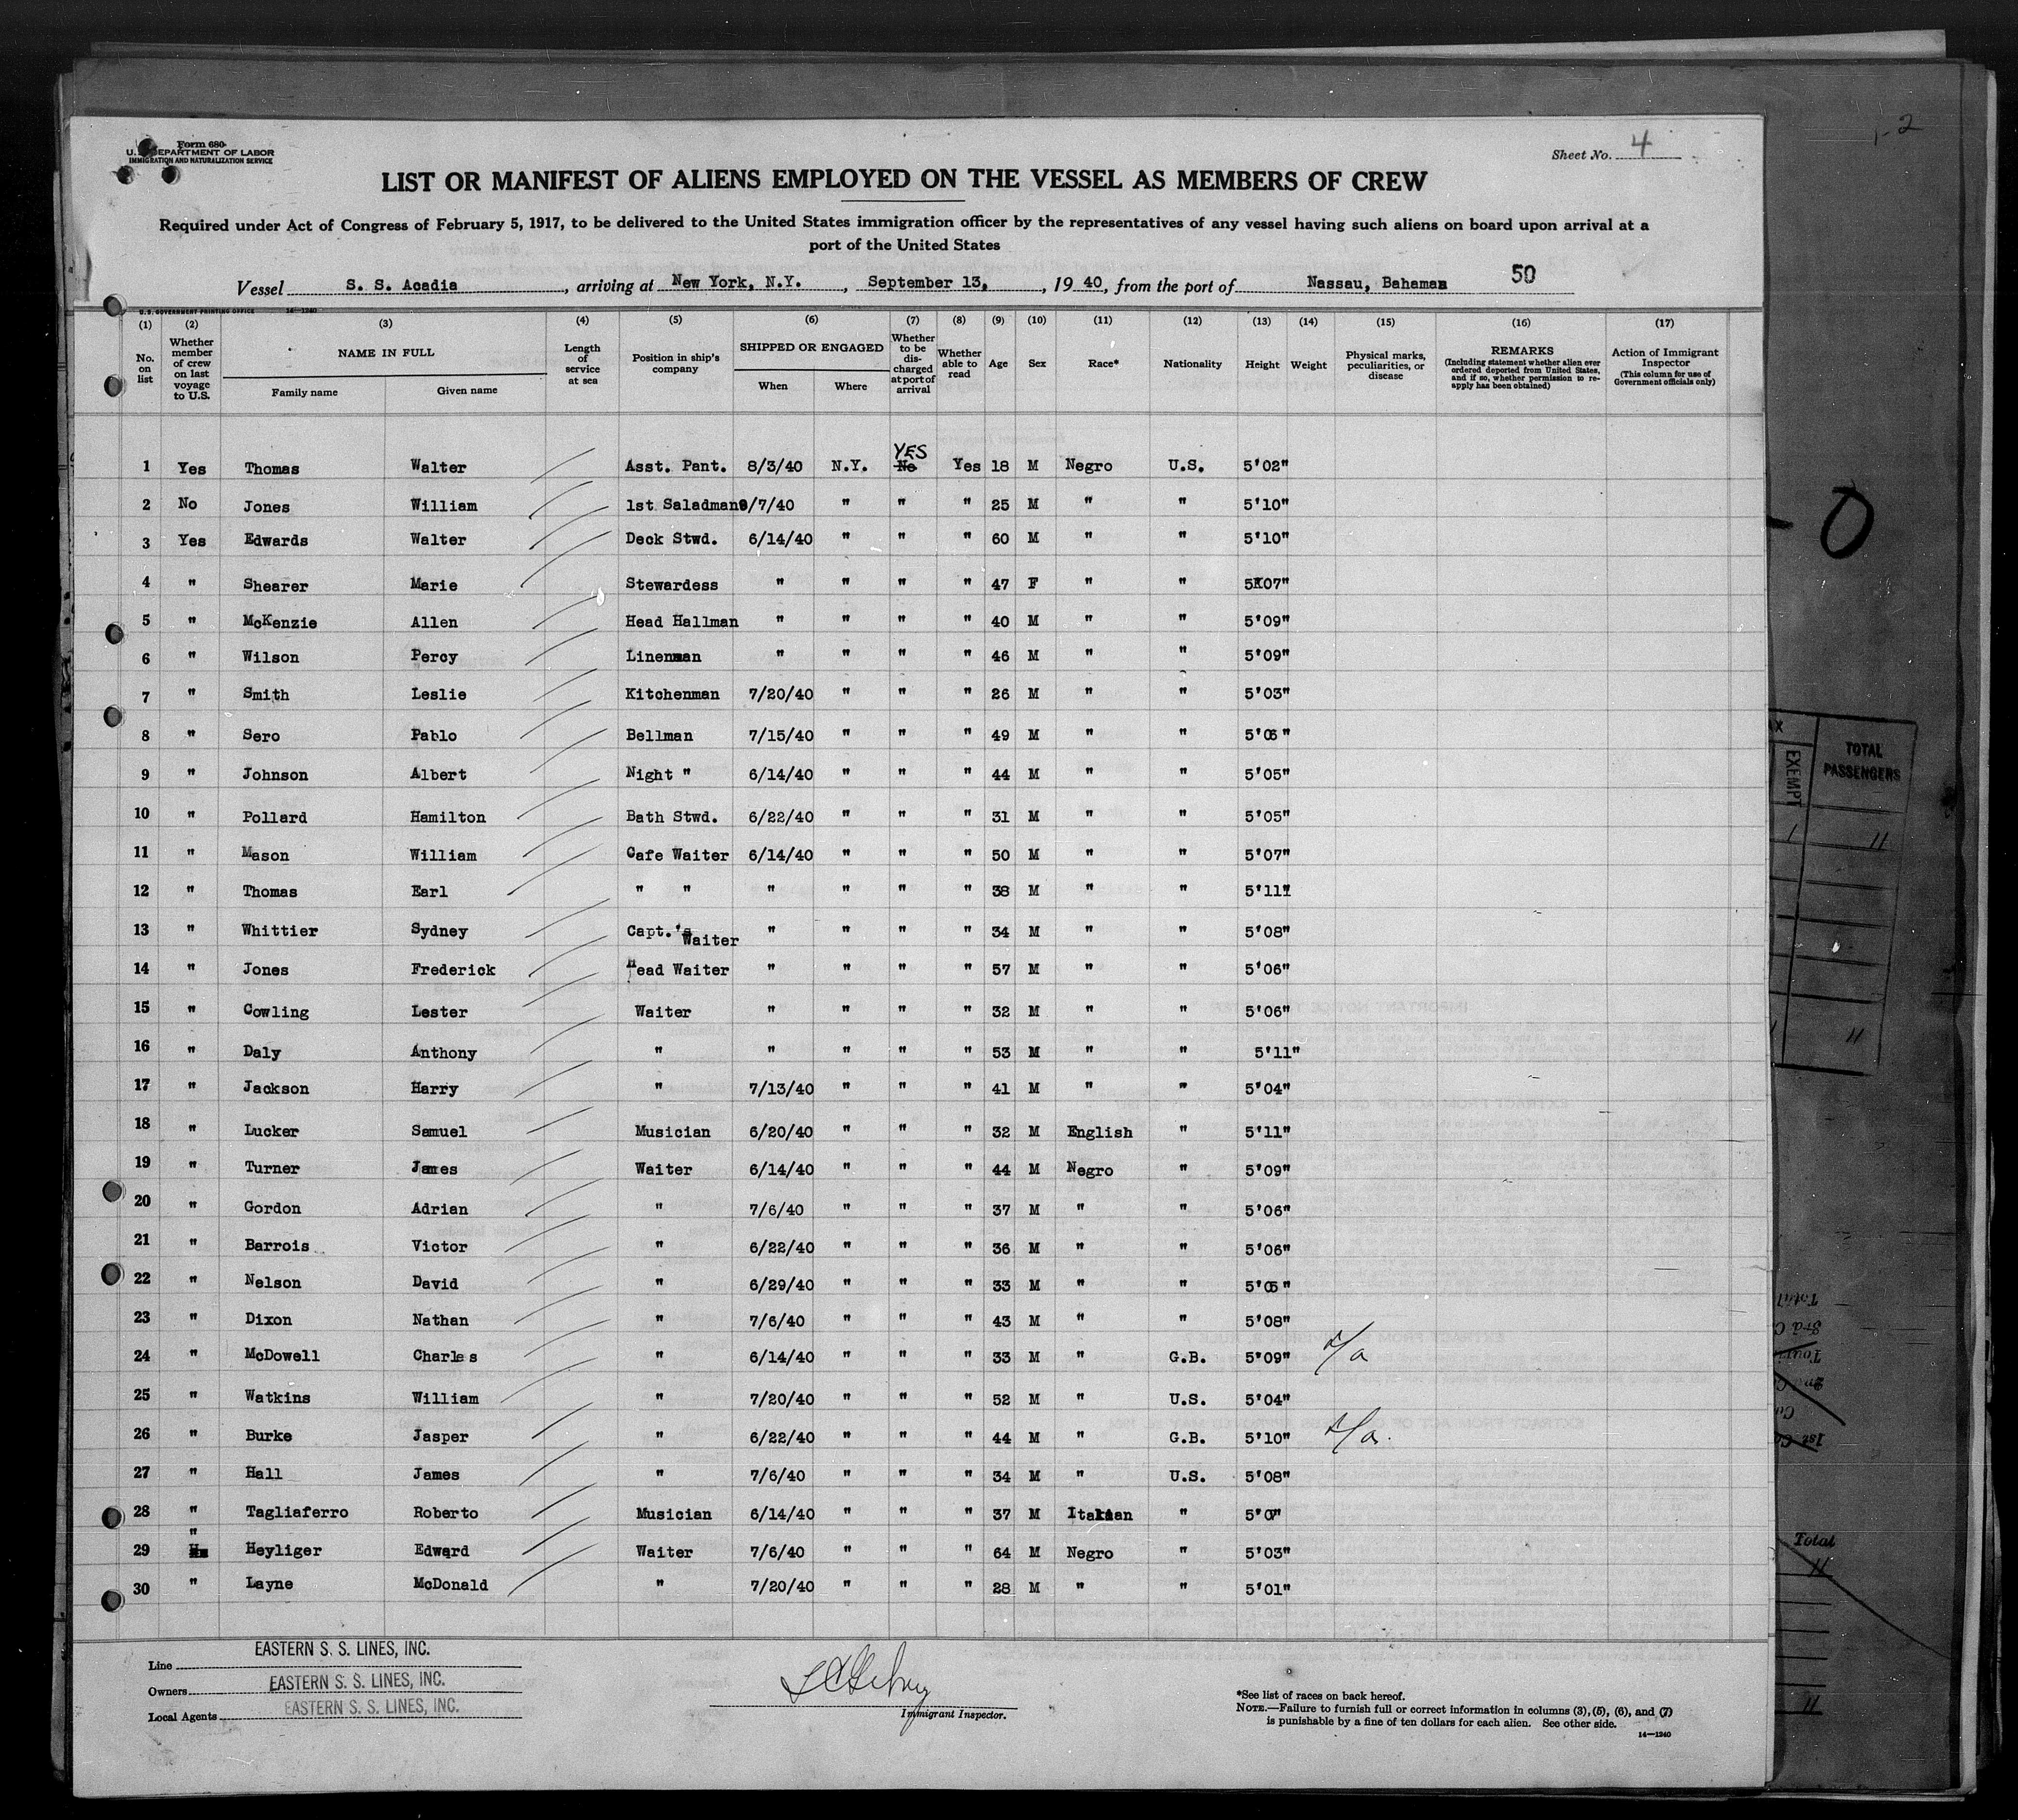 Form 680
U. S. DEPARTMENT OF LABOR
IMMIGRATION AND NATURALIZATION SERVICE
Sheet No. 4
LIST OR MANIFEST OF ALIENS EMPLOYED ON THE VESSEL AS MEMBERS OF CREW
Required under Act of Congress of February 5, 1917, to be delivered to the United States immigration officer by the representatives of any vessel having such aliens on board upon arrival at a
port of the United States
Vessel S. S. Acadia, arriving at New York, N.Y., September 13, 1940, from the port of Nassau, Bahamas 50
U.S. GOVERNMENT PRINTING OFFICE 14—1240
(1) (2) (3) (4) (5) (6) (7) (8) (9) (10) (11) (12) (13) (14) (15) (16) (17)
No. on list
Whether member of crew on last voyage to U.S.
NAME IN FULL
Family name Given name
Length of service at sea
Position in ship's company
SHIPPED OR ENGAGED
When Where
Whether to be discharged at port of arrival
Whether able to read
Age
Sex
Race*
Nationality
Height
Weight
Physical marks, peculiarities, or disease
REMARKS
(Including statement whether alien ever ordered deported from United States, and if so, whether permission to reapply has been obtained)
Action of Immigrant Inspector
(This column for use of Government officials only)
YES
1 Yes Thomas Walter Asst. Pant. 8/3/40 N.Y. No Yes 18 M Negro U.S. 5'02"
2 No Jones William 1st Saladman 9/7/40 " " " 25 M " " 5'10"
3 Yes Edwards Walter Deck Stwd. 6/14/40 " " " 60 M " " 5'10"
4 " Shearer Marie Stewardess " " " " 47 F " " 5'07"
5 " McKenzie Allen Head Hallman " " " " 40 M " " 5'09"
6 " Wilson Percy Linenman " " " " 46 M " " 5'09"
7 " Smith Leslie Kitchenman 7/20/40 " " " 26 M " " 5'03"
8 " Sero Pablo Bellman 7/15/40 " " " 49 M " " 5'06"
9 " Johnson Albert Night " 6/14/40 " " " 44 M " " 5'05"
10 " Pollard Hamilton Bath Stwd. 6/22/40 " " " 31 M " " 5'05"
11 " Mason William Cafe Waiter 6/14/40 " " " 50 M " " 5'07"
12 " Thomas Earl " " " " " " 38 M " " 5'11"
13 " Whittier Sydney Capt.'s Waiter " " " " 34 M " " 5'08"
14 " Jones Frederick Head Waiter " " " " 57 M " " 5'06"
15 " Cowling Lester Waiter " " " " 32 M " " 5'06"
16 " Daly Anthony " " " " " 53 M " " 5'11"
17 " Jackson Harry " 7/13/40 " " " 41 M " " 5'04"
18 " Lucker Samuel Musician 6/20/40 " " " 32 M English " 5'11"
19 " Turner James Waiter 6/14/40 " " " 44 M Negro " 5'09"
20 " Gordon Adrian " 7/6/40 " " " 37 M " " 5'06"
21 " Barrois Victor " 6/22/40 " " " 36 M " " 5'06"
22 " Nelson David " 6/29/40 " " " 33 M " " 5'05"
23 " Dixon Nathan " 7/6/40 " " " 43 M " " 5'08"
24 " McDowell Charles " 6/14/40 " " " 33 M " G.B. 5'09"
25 " Watkins William " 7/20/40 " " " 52 M " U.S. 5'04"
26 " Burke Jasper " 6/22/40 " " " 44 M " G.B. 5'10"
27 " Hall James " 7/6/40 " " " 34 M " U.S. 5'08"
28 " Tagliaferro Roberto Musician 6/14/40 " " " 37 M Italian " 5'07"
29 " Heyliger Edward Waiter 7/6/40 " " " 64 M Negro " 5'03"
30 " Layne McDonald " 7/20/40 " " " 28 M " " 5'01"
Line EASTERN S. S. LINES, INC.
Owners EASTERN S. S. LINES, INC.
Local Agents EASTERN S. S. LINES, INC.
Immigrant Inspector.
*See list of races on back hereof.
NOTE.—Failure to furnish full or correct information in columns (3), (5), (6), and (7)
is punishable by a fine of ten dollars for each alien. See other side.
14—1240
EXEMPT
TOTAL PASSENGERS
11
11
Total
11